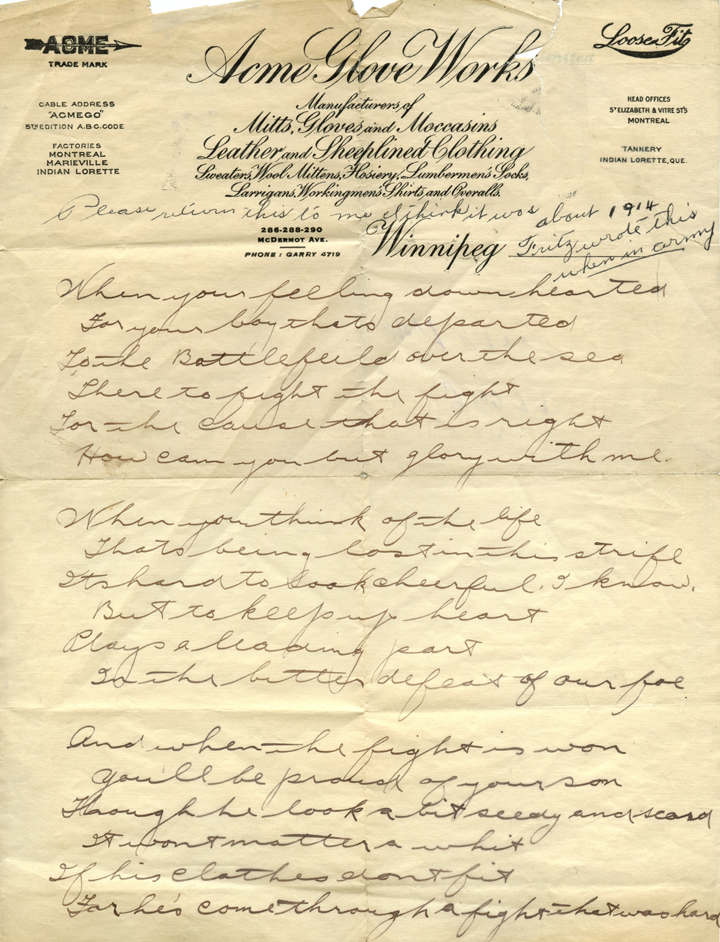 ACME
TRADE MARK
CABLE ADDRESS
"ACMEGO"
5TH EDITION A.B.C. CODE
FACTORIES
MONTREAL
MARIEVILLE
INDIAN LORETTE
Acme Glove Works
Manufacturers of
Mitts, Gloves and Moccasins
Leather and Sheeplined Clothing
Sweaters, Wool Mittens, Hosiery, Lumbermen's Socks,
Larrigans, Workingmen's Shirts and Overalls.
Loose Fit
HEAD OFFICES
ST ELIZABETH & VITRE ST'S
MONTREAL
TANNERY
INDIAN LORETTE, QUE.
Please return this to me I think it was about 1914
Fritz wrote this
when in army
286-288-290
MCDERMOT AVE.
PHONE : GARRY 4719
Winnipeg
When your feeling down hearted
For your boy thats departed
To the Battlefeild over the sea
There to fight the fight
For the cause that is right
How can you but glory with me.
When you think of the life
Thats being lost in this strife
Its hard to look cheerful, I know.
But to keep up heart
Plays a leading part
In the bitter defeat of our foe
And when the fight is won
You'll be proud of your son
Though he look a bit seedy and scard
It wont matter a whit
If his clothes dont fit
For he's come through a fight that was hard